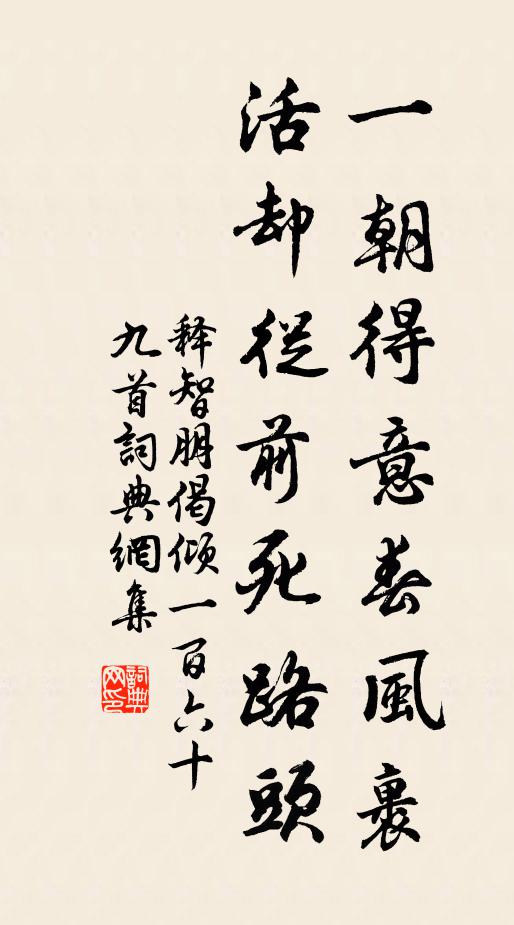 一朝得意春風裹
活却從前死路頭
释智朋偈倾一百六十
九首詞典網集
詞典網印